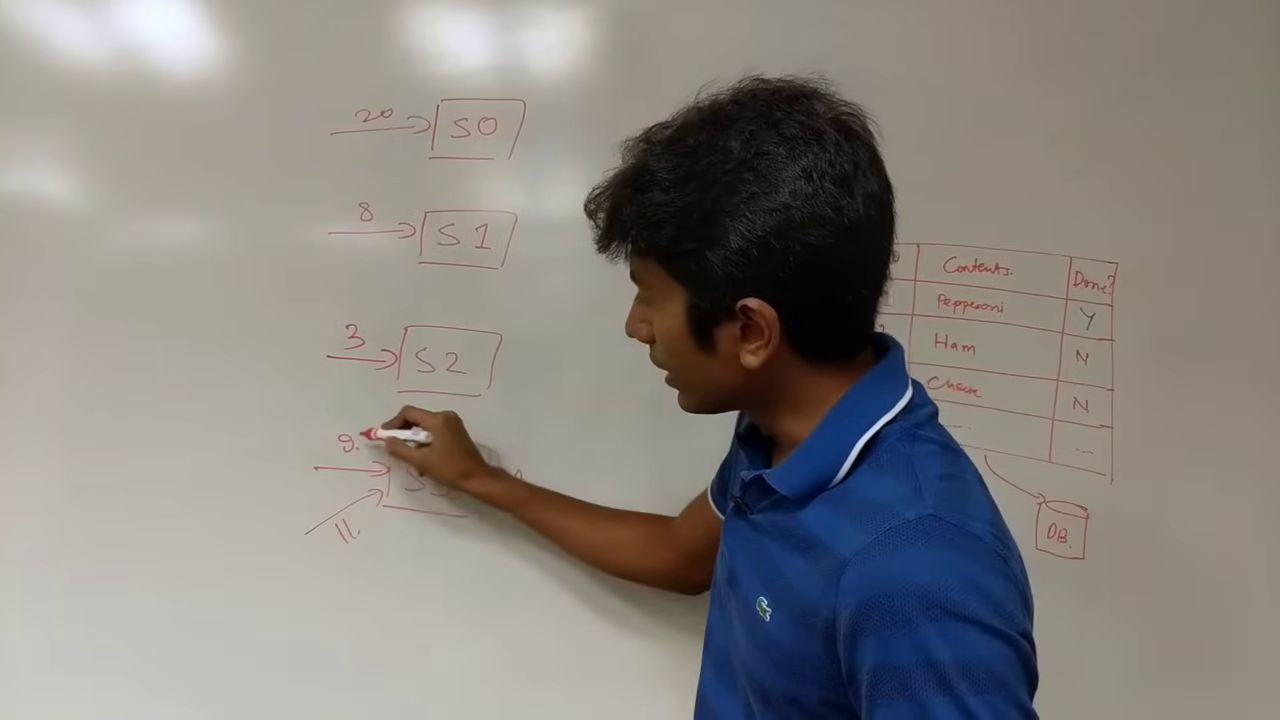 20
S0
8
S1
3
S2
9.
11.
Contents.
Done?
Pepperoni
Y
Ham
N
Cheese
N
....
...
DB.